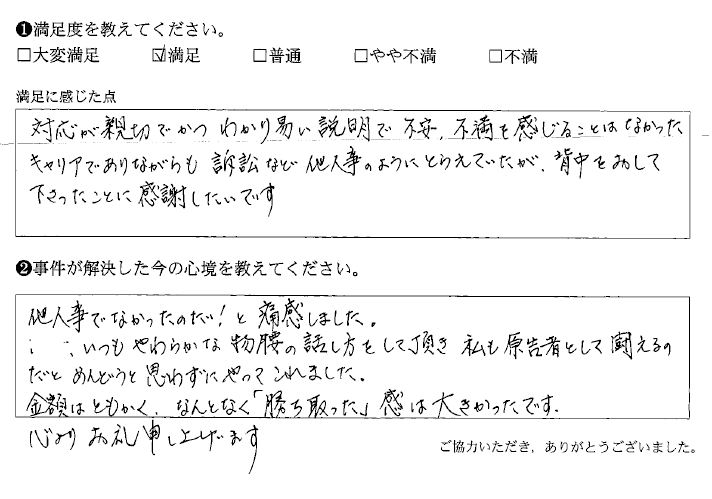 ❶満足度を教えてください。
□大変満足 ☑満足 □普通 □やや不満 □不満
満足に感じた点
対応が親切でかつ わかり易い説明で 不安、不満も感じることはなかった
キャリアでありながらも 訴訟など 他人事のようにとらえていたが、背中をおして
下さったことに感謝したいです
❷事件が解決した今の心境を教えてください。
他人事でなかったのだ!と痛感しました。
いつも やわらかな 物腰の話し方をして頂き 私も原告者として闘えるの
だと めんどうと思わずにやってこれました。
金額はともかく、なんとなく「勝ち取った」感は大きかったです。
心より お礼申し上げます
ご協力いただき、ありがとうございました。